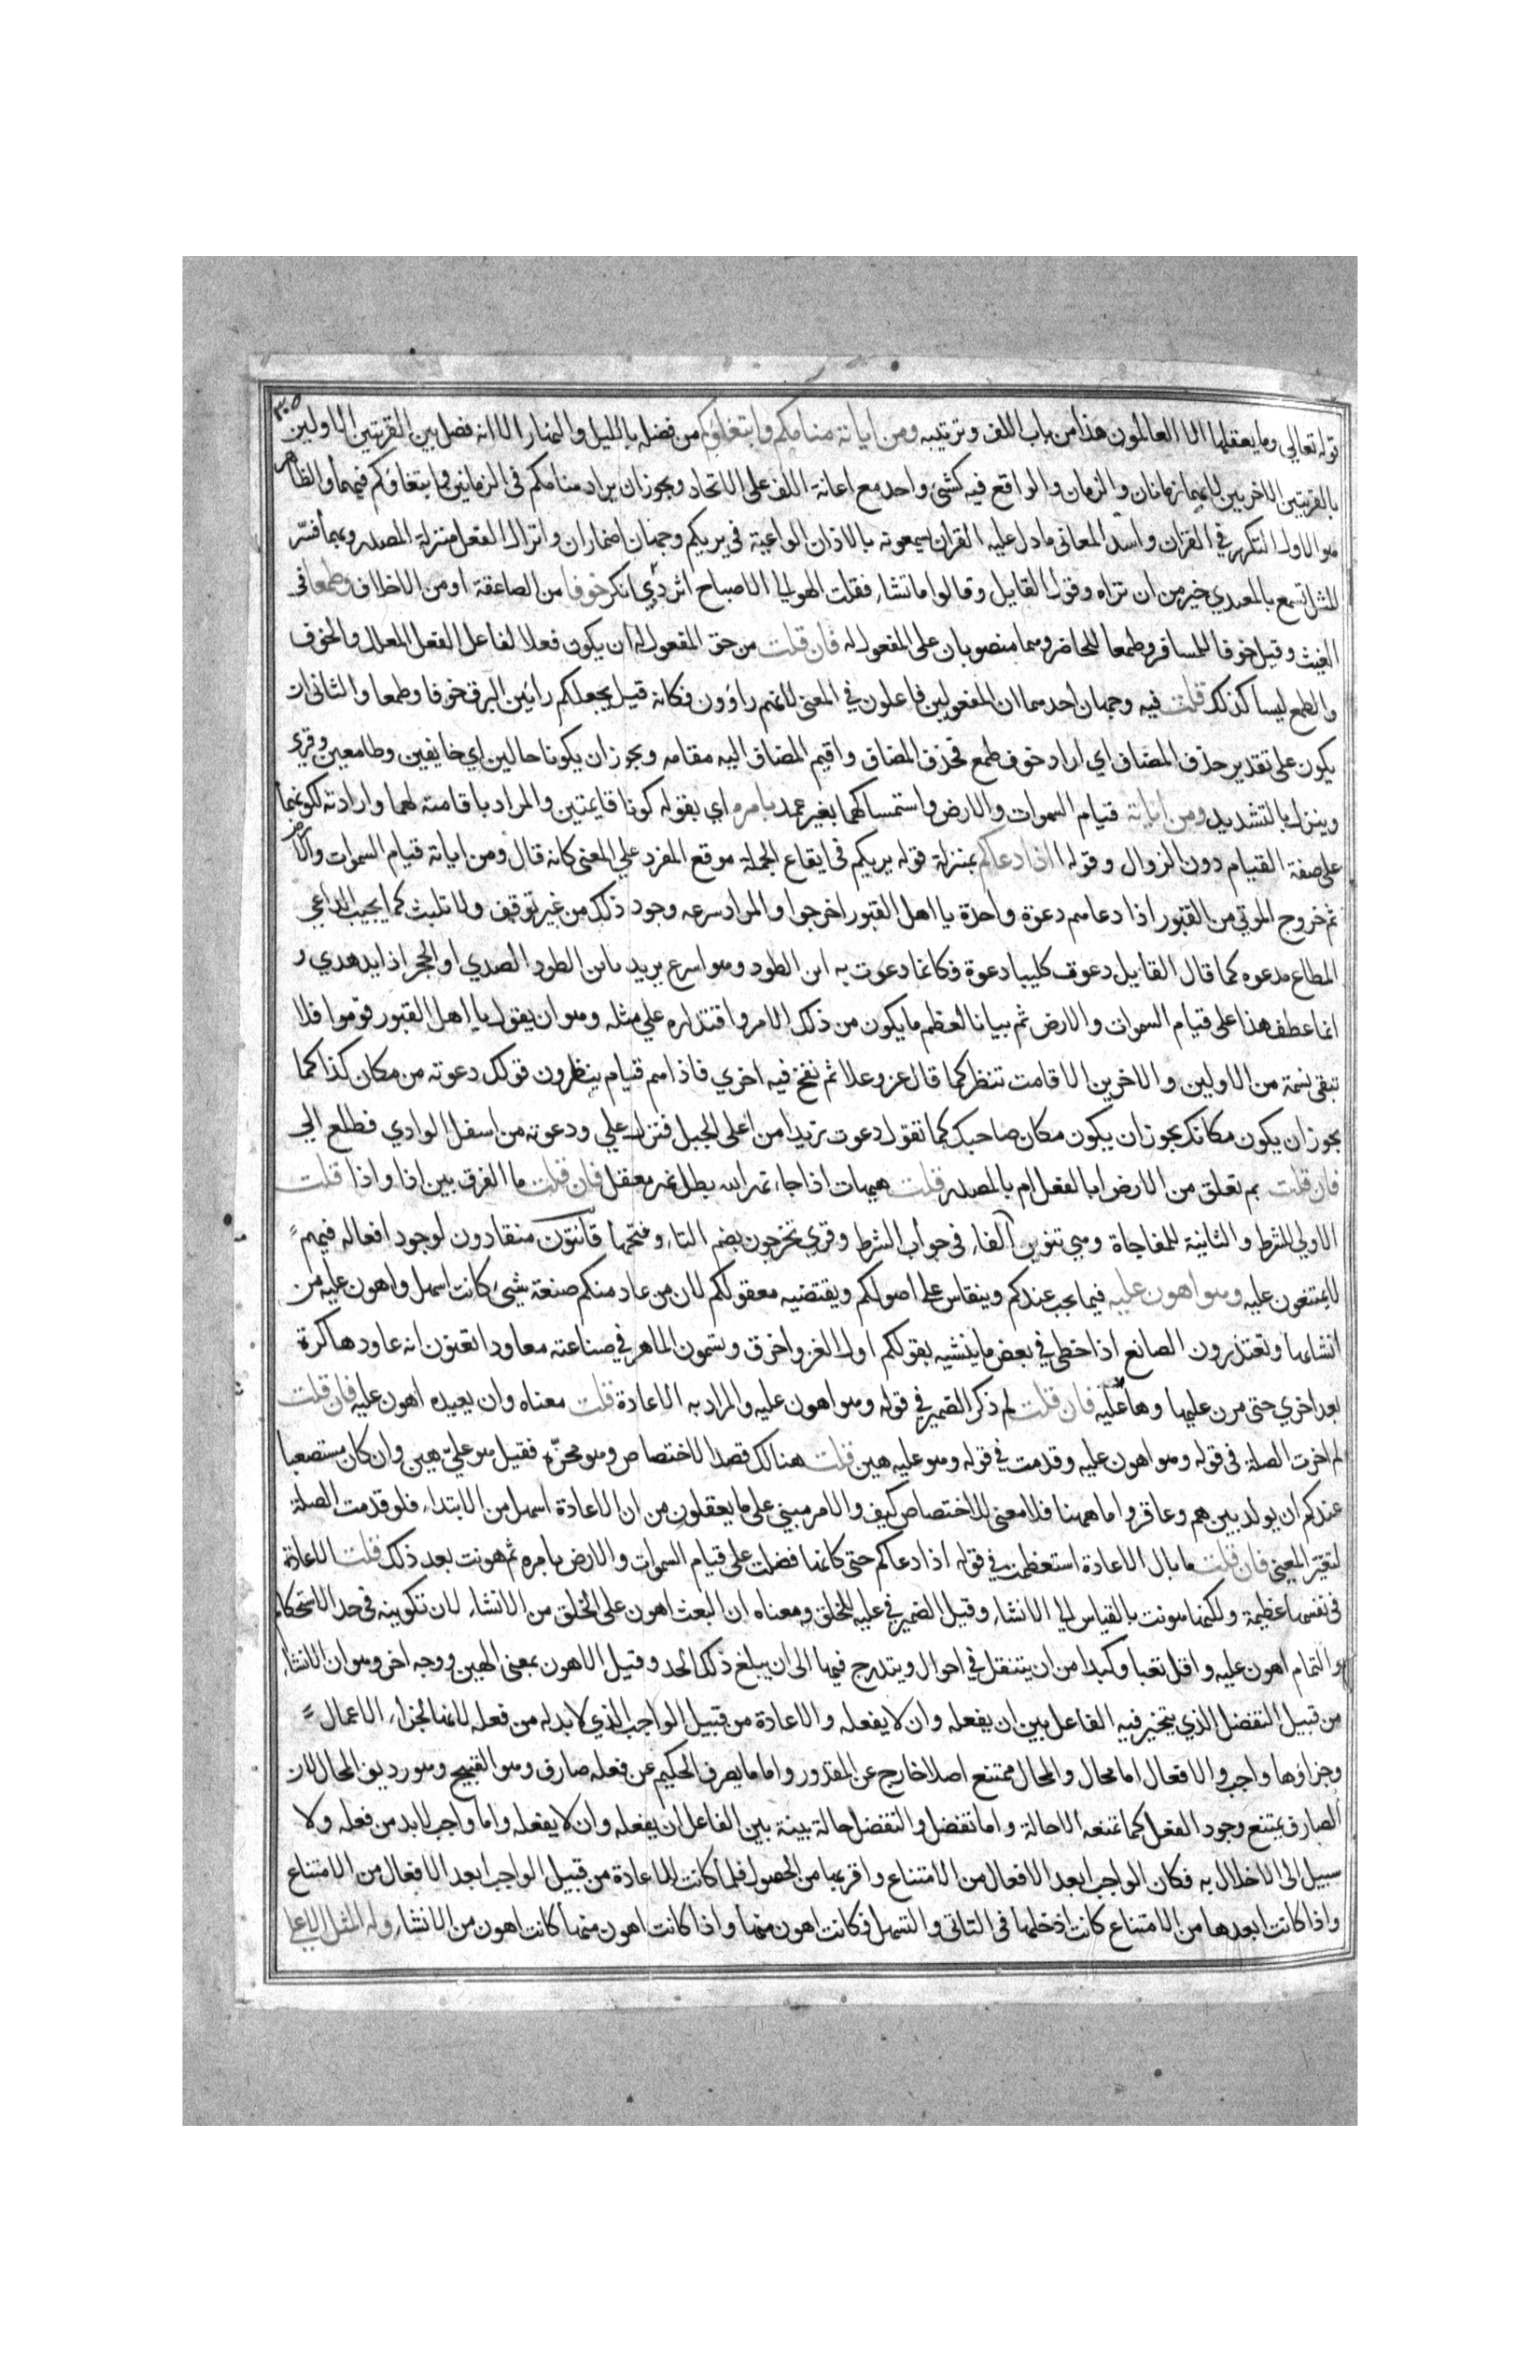 ٣٠٥
قوله تعالي وما يعقلها الا العالمون هذا من باب اللف وترتيبه ومن اياته منامكم وابتغاؤكم من فضله بالليل والنهار الا انه فصل بين القرينتين الاولين
بالقرينتين الاخريين لانهما زمانان والزمان والواقع فيه كشئ واحد مع اعانة اللف على الاتحاد ويجوز ان يراد منامكم في الزمانين وابتغاؤكم فيهما والظاهر
هو الاول لتكرره في القرآن واسد المعاني ما دل عليه القرآن يسمعونه بالاذان الواعية في يريكم وجهان اضمار ان وانزال الفعل منزلة المصدر وبهما فسّر
المثل تسمع بالمعيدي خير من ان تراه وقول القايل وقالوا ما تشاء فقلت الهو الي الاصباح اثر ذي اثير خوفا من الصاعقة او من الاخلاف وطمعا في
الغيث وقيل خوفا للمسافر وطمعا للحاضر وهما منصوبان على المفعول له فان قلت من حق المفعول له ان يكون فعلا لفاعل الفعل المعلل والخوف
والطمع ليسا كذلك قلت فيه وجهان احدهما ان المفعولين فاعلون في المعنى لانهم راؤون فكانه قيل يجعلكم رائين البرق خوفا وطمعا والثاني ان
يكون على تقدير حذف المضاف اي اراد خوف وطمع فحذف المضاف واقيم المضاف اليه مقامه ويجوز ان يكونا حالين اي خايفين وطامعين وقري
وينزل بالتشديد ومن اياته قيام السموات والارض واستمساكهما بغير عمد بامره اي بقوله كونا قايمتين والمراد باقامته لهما وارادته لكونهما
على صفة القيام دون الزوال وقوله اذا دعاكم بمنزلة قوله يريكم في ايقاع الجملة موقع المفرد علي المعنى كانه قال ومن اياته قيام السموات والارض
ثم خروج الموتي من القبور اذا دعاهم دعوة واحدة يا اهل القبور اخرجوا والمراد سرعه وجود ذلك من غير توقف ولا تلبث كما يجيب الداعي
المطاع مدعوه كما قال القايل دعوت كليبا دعوة فكانما دعوت به ابن الطود وهو اسرع يريد بابن الطود الصدي او الحجر اذا يدهدي و
انما عطف هذا على قيام السموات والارض ثم بيانا لعظم ما يكون من ذلك الامر واقتداره علي مثله وهو ان يقول يا اهل القبور قوموا فلا
تبقى نسمة من الاولين والاخرين الا قامت تنظر كما قال عز وعلا ثم نفخ فيه اخري فاذا هم قيام ينظرون قولك دعوته من مكان كذا كما
يجوز ان يكون مكانك يجوز ان يكون مكان صاحبك كما تقول دعوت زيدا من اعلى الجبل فنزل علي ودعوته من اسفل الوادي فطلع الي
فان قلت بم تعلق من الارض ابالفعل ام بالمصدر قلت هيهات اذا جاء نهر الله بطل نهر معقل فان قلت ما الفرق بين اذا واذا قلت
الاولي للشرط والثانية للمفاجاة وهي تنوب الفاء في جواب الشرط وقري تخرجون بضم التاء وفتحها قانتون منقادون لوجود افعاله فيهم
لا يمتنعون عليه وهو اهون عليه فيما يجب عندكم وينقاس على اصولكم ويقتضيه معقولكم لان من عاد منكم صنعة شيئ كانت اسهل واهون عليه من
انشاءها وتعتذرون الصانع اذا خطي في بعض ما ينشيه بقولكم اول الغزو اخرق وتسمون الماهر في صناعته معاودا تعنون انه عاودها كرة
بعد اخري حتى مرن عليها وها علته فان قلت لم ذكر الضمير في قوله وهو اهون عليه والمراد به الاعادة قلت معناه وان يعيده اهون عليه فان قلت
لم اخرت الصلة في قوله وهو اهون عليه وقدمت في قوله وهو عليه هين قلت هنالك قصد الاختصاص وهو محزّه فقيل هو عليّ هين وان كان مستصعبا
عندكم ان يولد بين هم وعاقر واما ههنا فلا معنى للاختصاص كيف والامر مبني على ما يعقلون من ان الاعادة اسهل من الابتداء فلو قدمت الصلة
لتغيّر المعنى فان قلت ما بال الاعادة استعظمت في قوله اذا دعاكم حتى كانما فضلت على قيام السموات والارض بامره ثم هونت بعد ذلك قلت الاعادة
في نفسها عظيمة ولكنها هونت بالقياس الي الانشاء وقيل الضمير في عليه للخلق ومعناه ان البعث اهون على الخلق من الانشاء لان تكوينه في حد الاستحكام
والتمام اهون عليه واقل تعبا وكبدا من ان يتنقل في احوال ويتدرج فيها الى ان يبلغ ذلك الحد وقيل الاهون بمعنى الهين ووجه اخر وهو ان الانشاء
من قبيل التفضل الذي يتخير فيه الفاعل بين ان يفعله وان لا يفعله والاعادة من قبيل الواجب الذي لا بد له من فعله لانها لجزاء الاعمال
وجزاؤها واجب والافعال اما محال والمحال ممتنع اصلا خارج عن المقدور واما ما يصرف الحكيم عن فعله صارف وهو القبيح وهو رديف المحال لان
الصارف يمنع وجود الفعل كما تمنعه الاحالة واما تفضل والتفضل حالة بينة بين الفاعل ان يفعله وان لا يفعله واما واجب لا بد من فعله ولا
سبيل الى الاخلال به فكان الواجب ابعد الافعال من الامتناع واقربها من الحصول فلما كانت الاعادة من قبيل الواجب ابعد الافعال من الامتناع
واذا كانت ابعدها من الامتناع كانت ادخلها في التاتي والتسهل فكانت اهون منها واذا كانت اهون منها كانت اهون من الانشاء وله المثل الاعلي